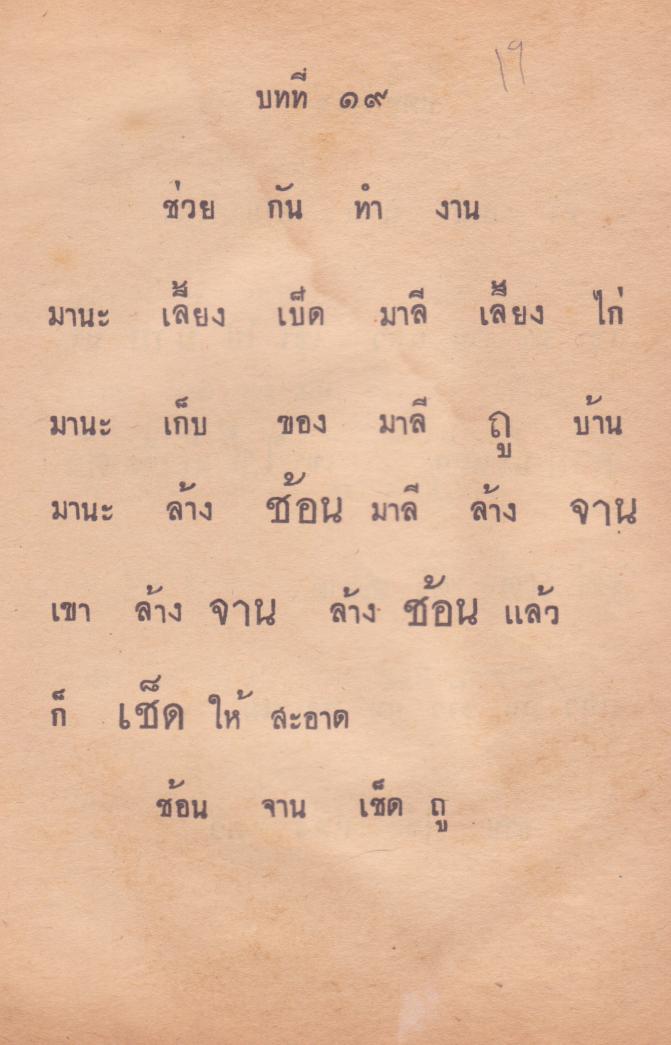 19
บทที่ ๑๙
ช่วย กัน ทำ งาน
มานะ เลี้ยง เป็ด มาลี เลี้ยง ไก่
มานะ เก็บ ของ มาลี ถู บ้าน
มานะ ล้าง ช้อน มาลี ล้าง จาน
เขา ล้าง จาน ล้าง ช้อน แล้ว
ก็ เช็ด ให้ สะอาด
ช้อน จาน เช็ด ถู